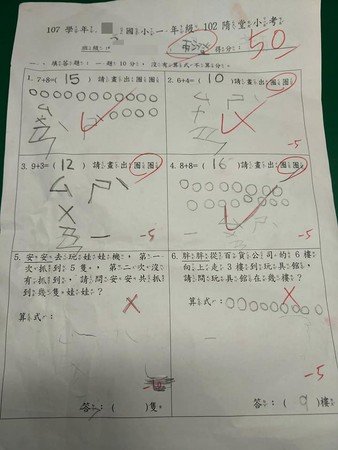 107 學年 國小一年級 102 隋堂小考
班級： 得分： 50
一、填答題：一題10分，沒有算式不算分
1. 7+8=( 15 ) 請畫出圈圈
2. 6+4=( 10 ) 請畫出圈圈
ㄙ ㄕˊ
-5
3. 9+3=( 12 ) 請畫出圈圈
ㄙ ㄕˊ
-5
4. 8+8=( 16 ) 請畫出圈圈
-5
5. 安安去玩娃娃機，第一
次抓到5隻，第二次沒
有抓到，請問安安共抓
到幾隻娃娃？
算式：
答：( )隻
6. 胖胖從百貨公司的6樓
向上走3樓到玩具館，
請問玩具館在幾樓？
算式：
-5
答：( 9 )樓